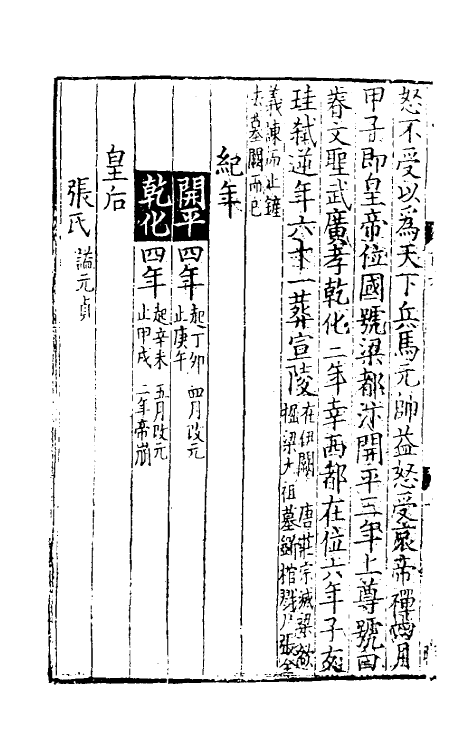 怒不受以爲天下兵馬元帥益怒受哀帝禪四月
甲子即皇帝位國號梁都汴開平三年上尊號曰
睿文聖武廣孝乾化二年幸西都在位六年子友
珪弑逆年六十一葬宣陵在伊闕 唐莊宗滅梁欲
掘梁太祖墓斵棺戮尸張全
義諫而止鏟
去墓闕而已
紀年
開平四年起丁卯 四月改元
止庚午
乾化四年起辛未 五月改元
止甲戌 二年帝崩
皇后
張氏謚元貞